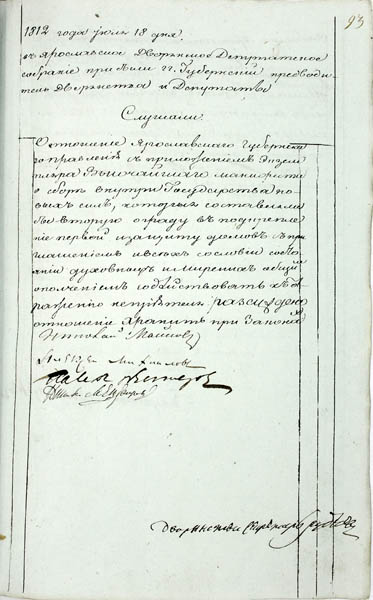 93
1812 года июля 18 дня
въ Ярославское Дворянское Депутатское
собрание прибыли гг. Губернский предводи
тель Дворянства и Депутаты
Слушали:
Отношение Ярославскаго Губернска
го правления съ приложениемъ Экзем
пляра Высочайшаго манифеста
о сборе внутри Государства но
выхъ силъ, которыя составляли
бы вторую ограду въ подкрепле
ние первой и защиту домовъ съ при
глашениемъ и всехъ сословий состо
яний духовныхъ и мирскихъ общи
ополчениемъ содействовать къ от
ражению неприятеля: разсуждено
отношения хранить при Законахъ
Николай Майков
Михайлов
Дворянства Секретарь